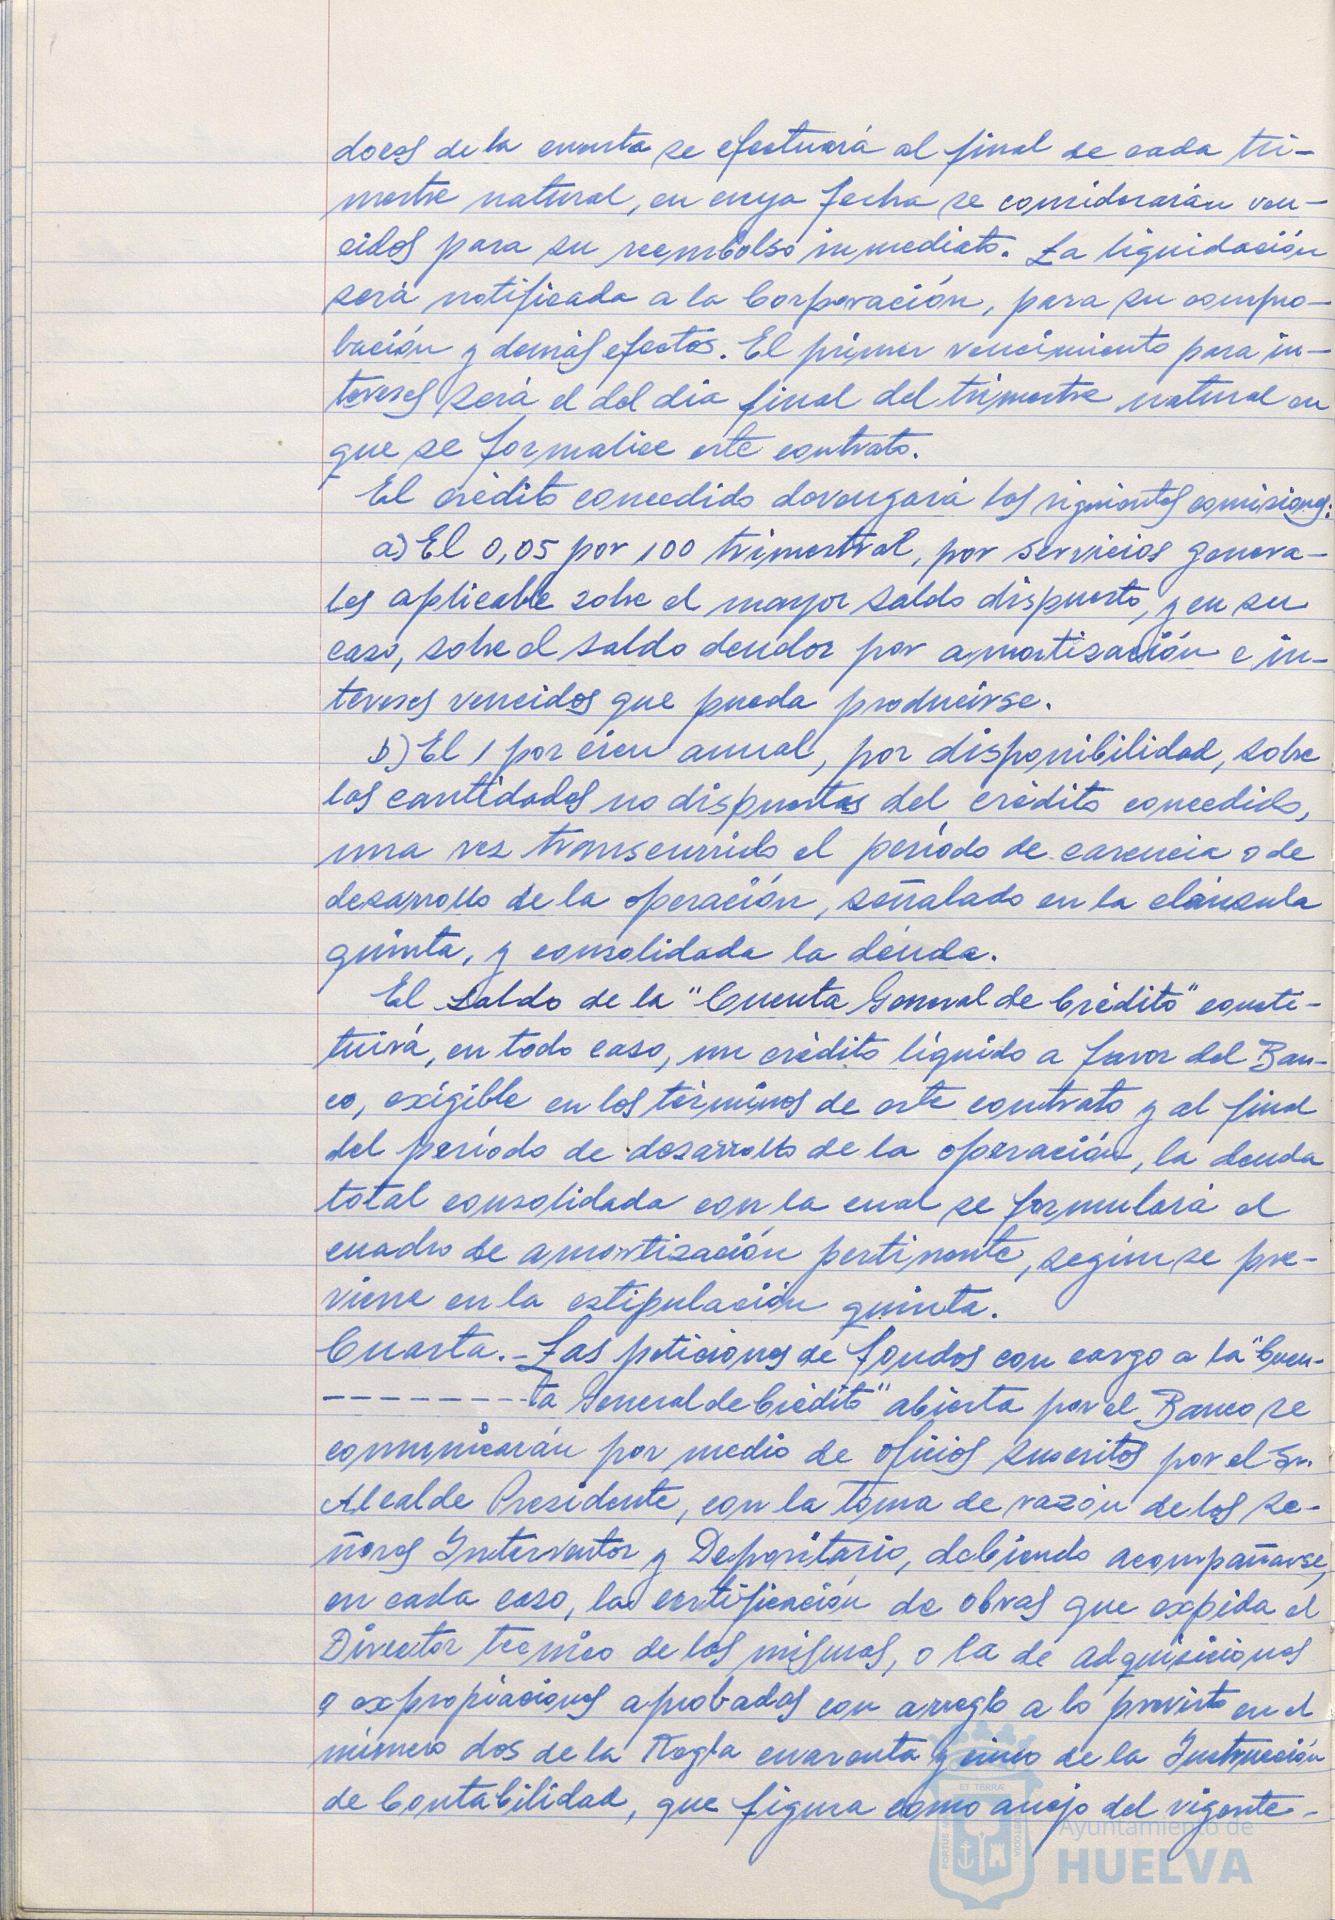 dores de la cuenta se efectuará al final de cada tri-
mestre natural, en cuya fecha se considerarán ven-
cidos para su reembolso inmediato. La liquidación
será notificada a la Corporación, para su compro-
bación y demás efectos. El primer vencimiento para in-
tereses será el del día final del trimestre natural en
que se formalice este contrato.
El crédito concedido devengará las siguientes comisiones:
a) El 0,05 por 100 trimestral, por servicios genera-
les aplicable sobre el mayor saldo dispuesto, y en su
caso, sobre el saldo deudor por amortización e in-
tereses vencidos que pueda producirse.
b) El 1 por cien anual, por disponibilidad, sobre
las cantidades no dispuestas del crédito concedido,
una vez transcurrido el período de carencia o de
desarrollo de la operación, señalado en la cláusula
quinta, y consolidada la deuda.
El saldo de la "Cuenta General de Crédito" consti-
tuirá, en todo caso, un crédito líquido a favor del Ban-
co, exigible en los términos de este contrato y al final
del período de desarrollo de la operación, la deuda
total consolidada con la cual se formulará el
cuadro de amortización pertinente, según se pre-
viene en la estipulación quinta.
Cuarta.- Las peticiones de fondos con cargo a la "Cuen-
---------ta General de Crédito" abierta por el Banco se
comunicarán por medio de oficios suscritos por el Sr.
Alcalde Presidente, con la toma de razón de los Se-
ñores Interventor y Depositario, debiendo acompañarse,
en cada caso, la certificación de obras que expida el
Director técnico de las mismas, o la de adquisiciones
o expropiaciones aprobadas con arreglo a lo previsto en el
número dos de la Regla cuarenta y cinco de la Instrucción
de Contabilidad, que figura como anejo del vigente-
ET TERRÆ
Ayuntamiento de
HUELVA